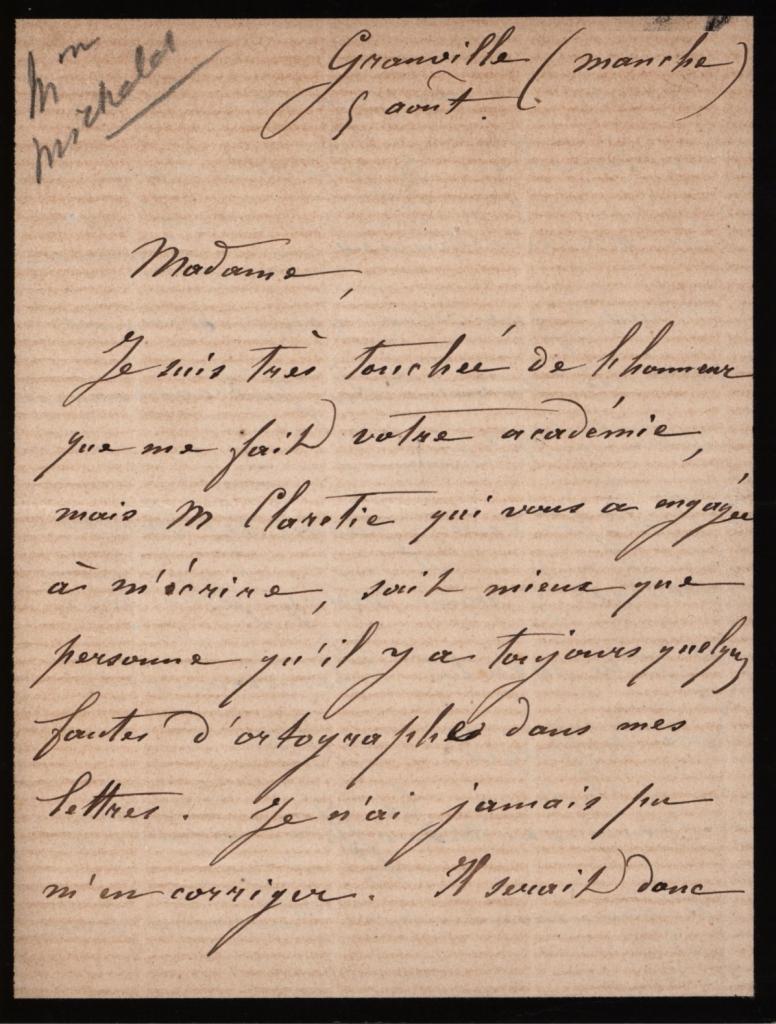 Mon
Granville (manche)
5 août.
Madame,
Je suis très touchée de l'honneur
que me fait votre académie,
mais M Claretie qui vous a engagée
à m'écrire, sait mieux que
personne qu'il y a toujours quelques
fautes d'ortographes dans mes
lettres. Je n'ai jamais pu
m'en corriger. Il serait donc